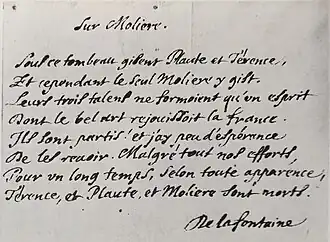 Sur Moliere.
Soubs ce tombeau gisent Plaute et Térence,
Et cependant le seul Moliere y gist.
Leurs trois talens ne formoient qu'un esprit
Dont le bel art rejouissoit la france.
Ils sont partis et j'ay peu d'espérance
De les revoir. Malgré tout nos efforts,
Pour un long temps, selon toute apparence,
Térence, et Plaute, et Moliere sont morts.
De la fontaine